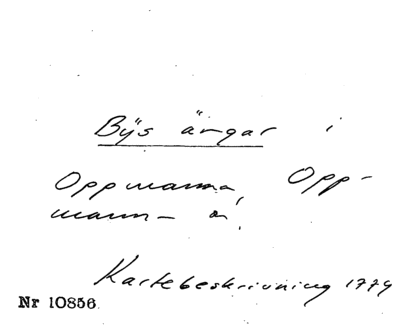 Bÿs ängar i
Oppmanna, Opp-
mann- a.
Kartebeskrivning 1774
Nr 10856.